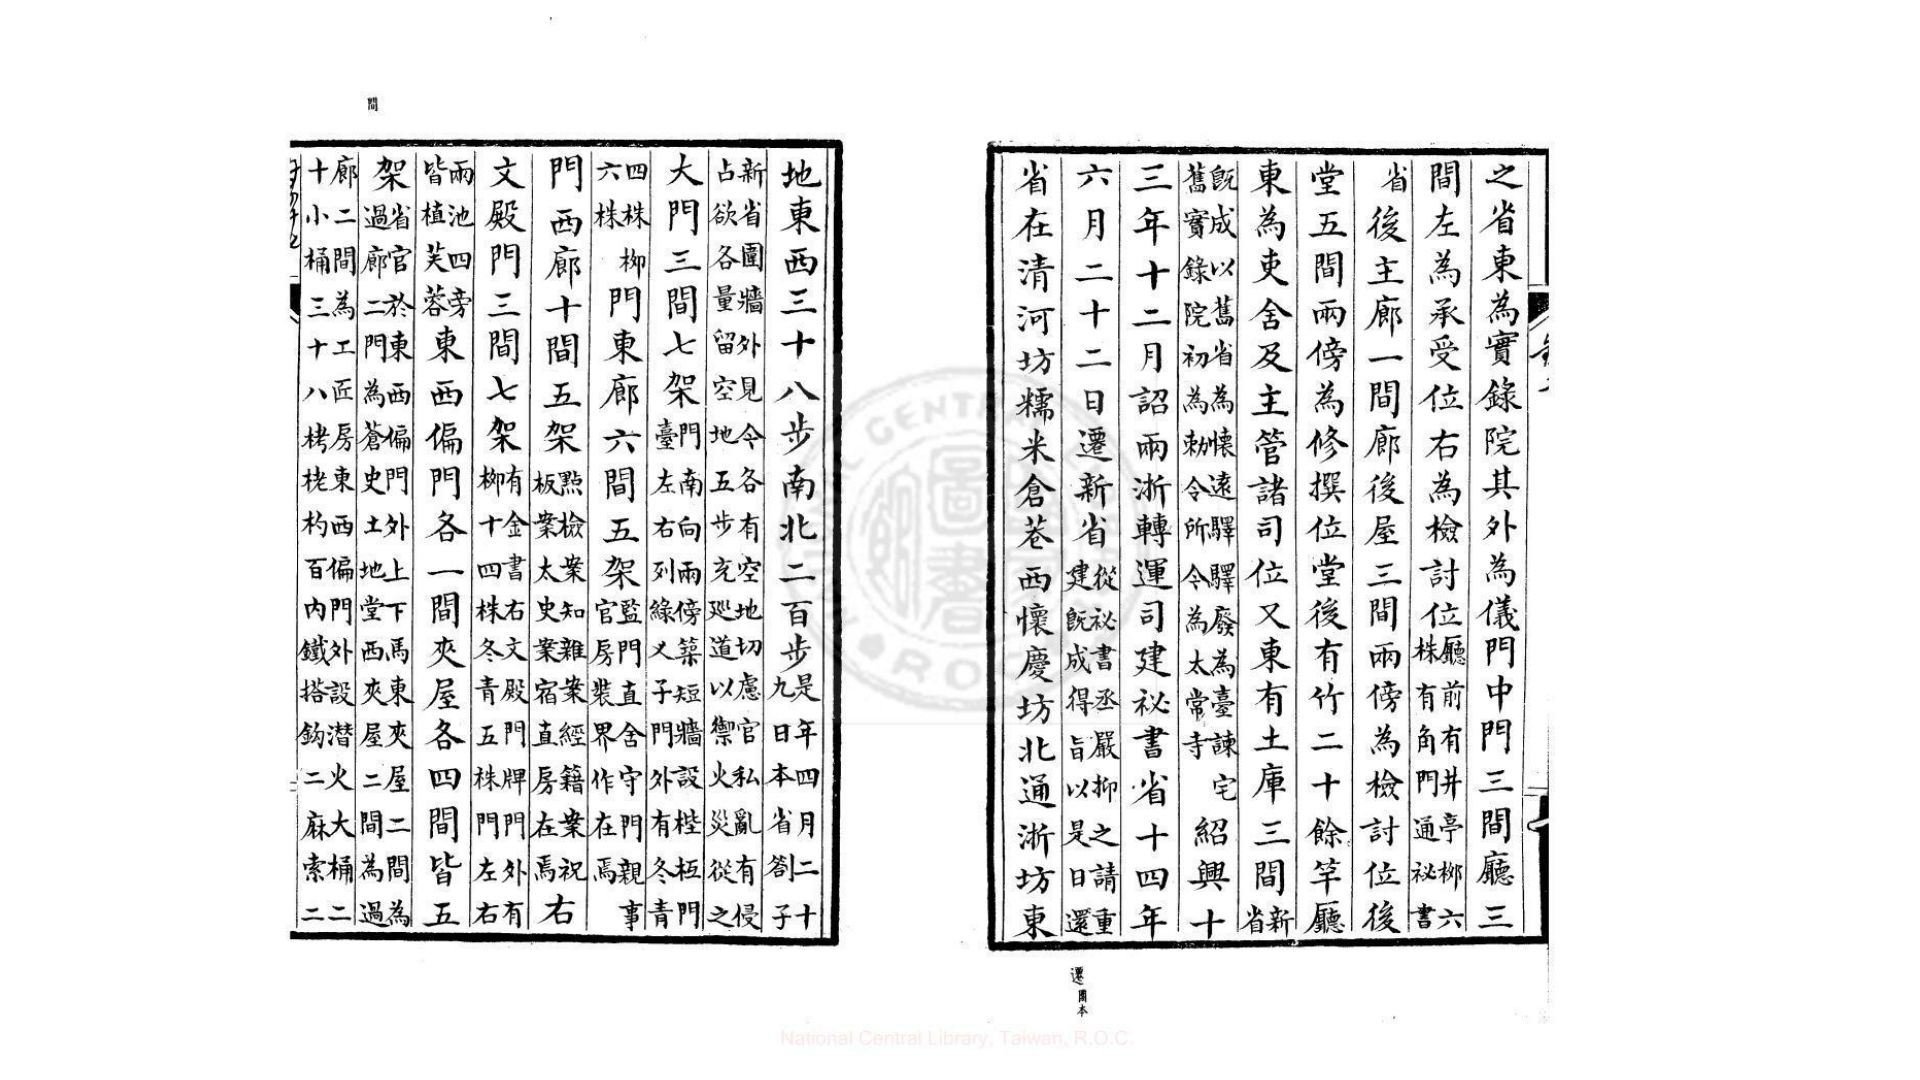 之省東為實錄院其外為儀門中門三間廳三
間左為承受位右為檢討位廳前有井亭栁六
株有角門通祕書
省後主廊一間廊後屋三間兩傍為檢討位後
堂五間兩傍為修撰位堂後有竹二十餘竿廳
東為吏舍及主管諸司位又東有土庫三間新
省
旣成以舊省為懷遠驛驛廢為臺諫宅
舊實錄院初為勅令所令為太常寺紹興十
三年十二月詔兩浙轉運司建祕書省十四年
六月二十二日遷新省從祕書丞嚴抑之請重
建旣成得旨以是日還
省在清河坊糯米倉巷西懷慶坊北通浙坊東
遷閣本
地東西三十八步南北二百步是年四月二十
九日本省劄子
新省圍牆外見令各有空地切慮官私亂有侵
占欲各量留空地五步充廵道以禦火災從之
大門三間七架門南向兩傍築短牆設梐枑門
臺左右列綠乂子門外有冬青
四株栁
六株門東廊六間五架監門直舍守門親事
官房裝界作在焉
門西廊十間五架點檢案知雜案經籍案祝
板案太史案宿直房在焉右
文殿門三間七架有金書右文殿門牌門外有
栁十四株冬青五株門左右
兩池四旁
皆植芙蓉東西偏門各一間夾屋各四間皆五
架省官於東西偏門外上下馬東夾屋二間為
過廊二門為蒼史土地堂西夾屋二間為過
間
廊二間為工匠房東西偏門外設潜火大桶二
十小桶三十八栲栳杓百內鐵搭鈎二麻索二
National Central Library, Taiwan, R.O.C.